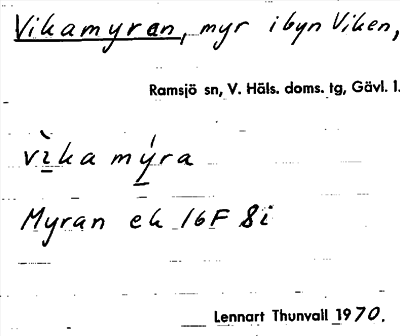 Vikamyran, myr i byn Viken,
Ramsjö sn, V. Häls. doms. tg, Gävl. l.
vìka mýra
Myran ek 16F 8i
Lennart Thunvall 1970.